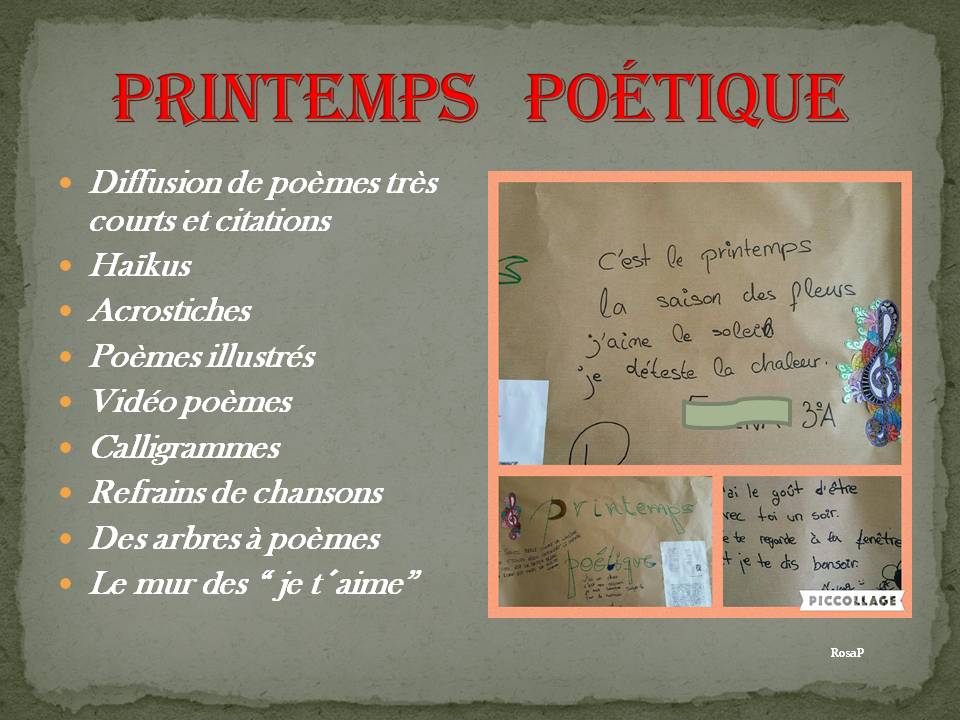 PRINTEMPS POÉTIQUE
Diffusion de poèmes très
courts et citations
Haïkus
Acrostiches
Poèmes illustrés
Vidéo poèmes
Calligrammes
Refrains de chansons
Des arbres à poèmes
Le mur des “ je t´aime”
C'est le printemps
la saison des fleurs
j'aime le soleil
je déteste la chaleur.
3ºA
Printemps
poétique
'ai le goût d'être
vec toi un soir.
e te regarde à la fenêtre
t je te dis bonsoir.
PICCOLLAGE
RosaP